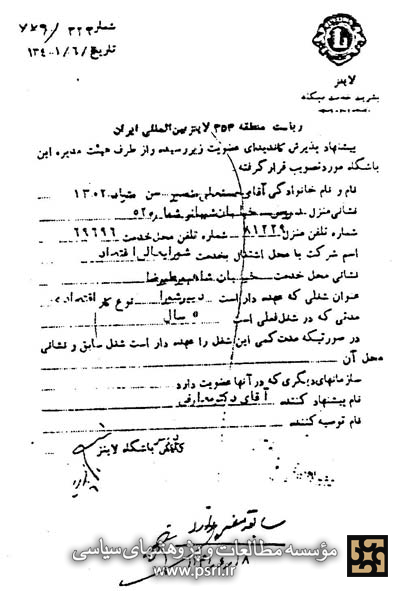 شماره ۳۲۳/۷۷۹
تاریخ ۱۳۴۰/۱/۶
LIONS
L
INTERNATIONAL
لاینز
بشریت خدمت میکند
ریاست منطقه ۳۵۳ لاینز بین‌المللی ایران
پیشنهاد پذیرش کاندیدای عضویت زیر رسیده و از طرف هیئت مدیره این
باشگاه مورد تصویب قرار گرفته
نام و نام خانوادگی آقای سن متولد ۱۳۰۲
نشانی منزل خیابان شماره ۵۲
شماره تلفن منزل ۸۱۲۲۹ شماره تلفن محل خدمت ۶۹۶۹۶
اسم شرکت یا محل اشتغال بخدمت شورایعالی اقتصاد
نشانی محل خدمت خیابان شاهپور علیرضا
عنوان شغلی که عهده دار است دبیر شورا نوع کار اقتصادی
مدتی که در شغل فعلی است ۵ سال
در صورتیکه مدت کمی این شغل را عهده دار است شغل سابق و نشانی
محل آن
سازمانهای دیگری که در آنها عضویت دارد
نام پیشنهاد کننده آقای دکتر معارفی
نام توصیه کننده
باشگاه لاینز
سابقه
مؤسسه مطالعات و پژوهشهای سیاسی
www.psri.ir